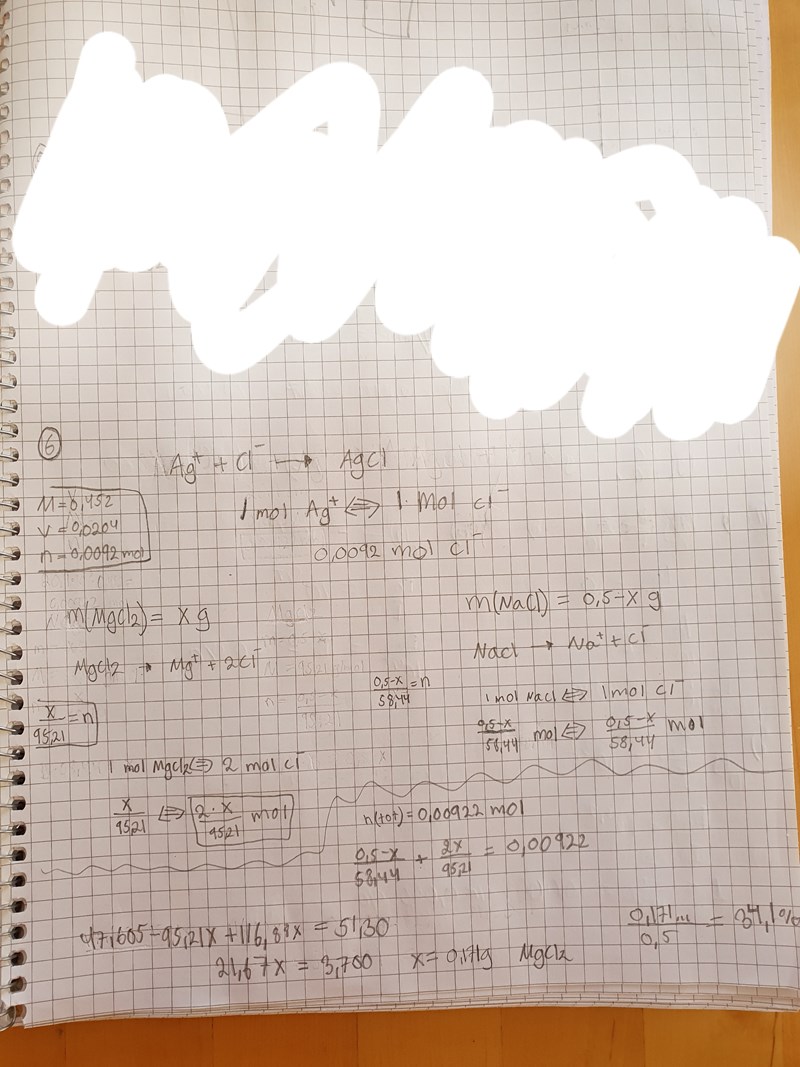 6
Ag⁺ + Cl⁻ → AgCl
M = 0,452
V = 0,0204
n = 0,0092 mol
1 mol Ag⁺ ⇔ 1 Mol Cl⁻
0,0092 mol Cl⁻
m(MgCl2) = x g
MgCl2 → Mg⁺ + 2Cl⁻
x/95,21 = n
1 mol MgCl2 ⇔ 2 mol Cl⁻
x/95,21 ⇔ 2·x/95,21 mol
m(NaCl) = 0,5-x g
NaCl → Na⁺ + Cl⁻
0,5-x/58,44 = n
1 mol NaCl ⇔ 1 mol Cl⁻
0,5-x/58,44 mol ⇔ 0,5-x/58,44 mol
n(tot) = 0,00922 mol
0,5-x/58,44 + 2x/95,21 = 0,00922
47,605-95,21x+116,88x = 51,30
21,67x = 3,700 x = 0,171g MgCl2
0,171.../0,5 = 34,1%